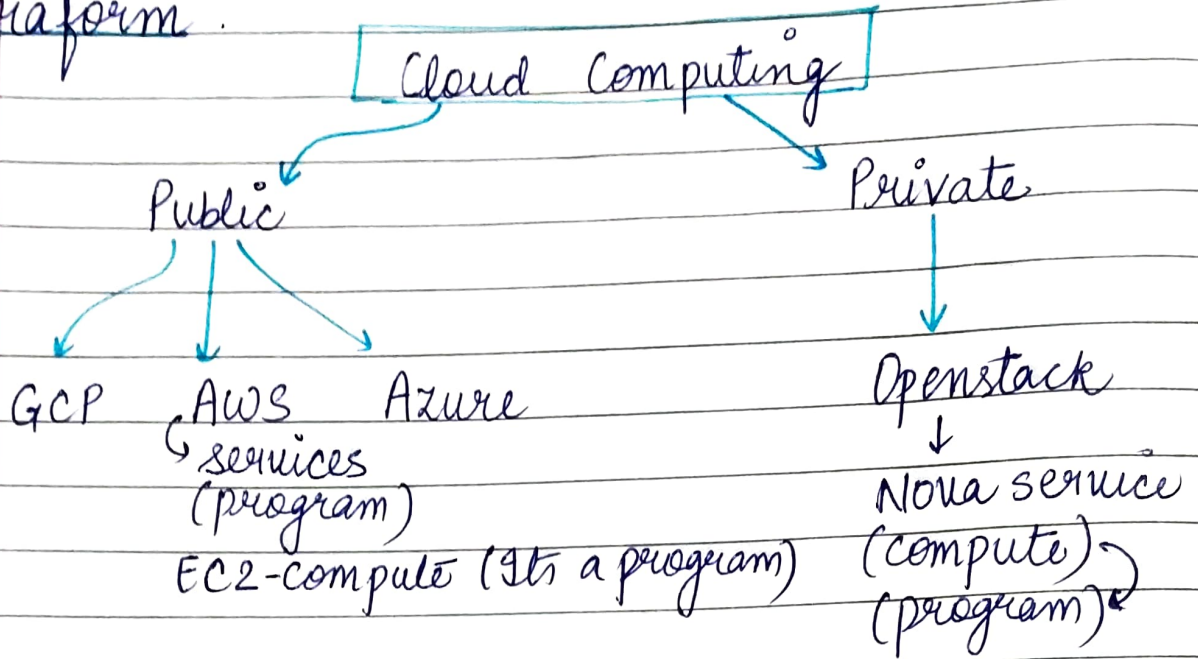 raform.
Cloud Computing
Public
Private
GCP AWS Azure
Openstack
services
(program)
Nova service
EC2-compute (Its a program)
(compute)
(program)